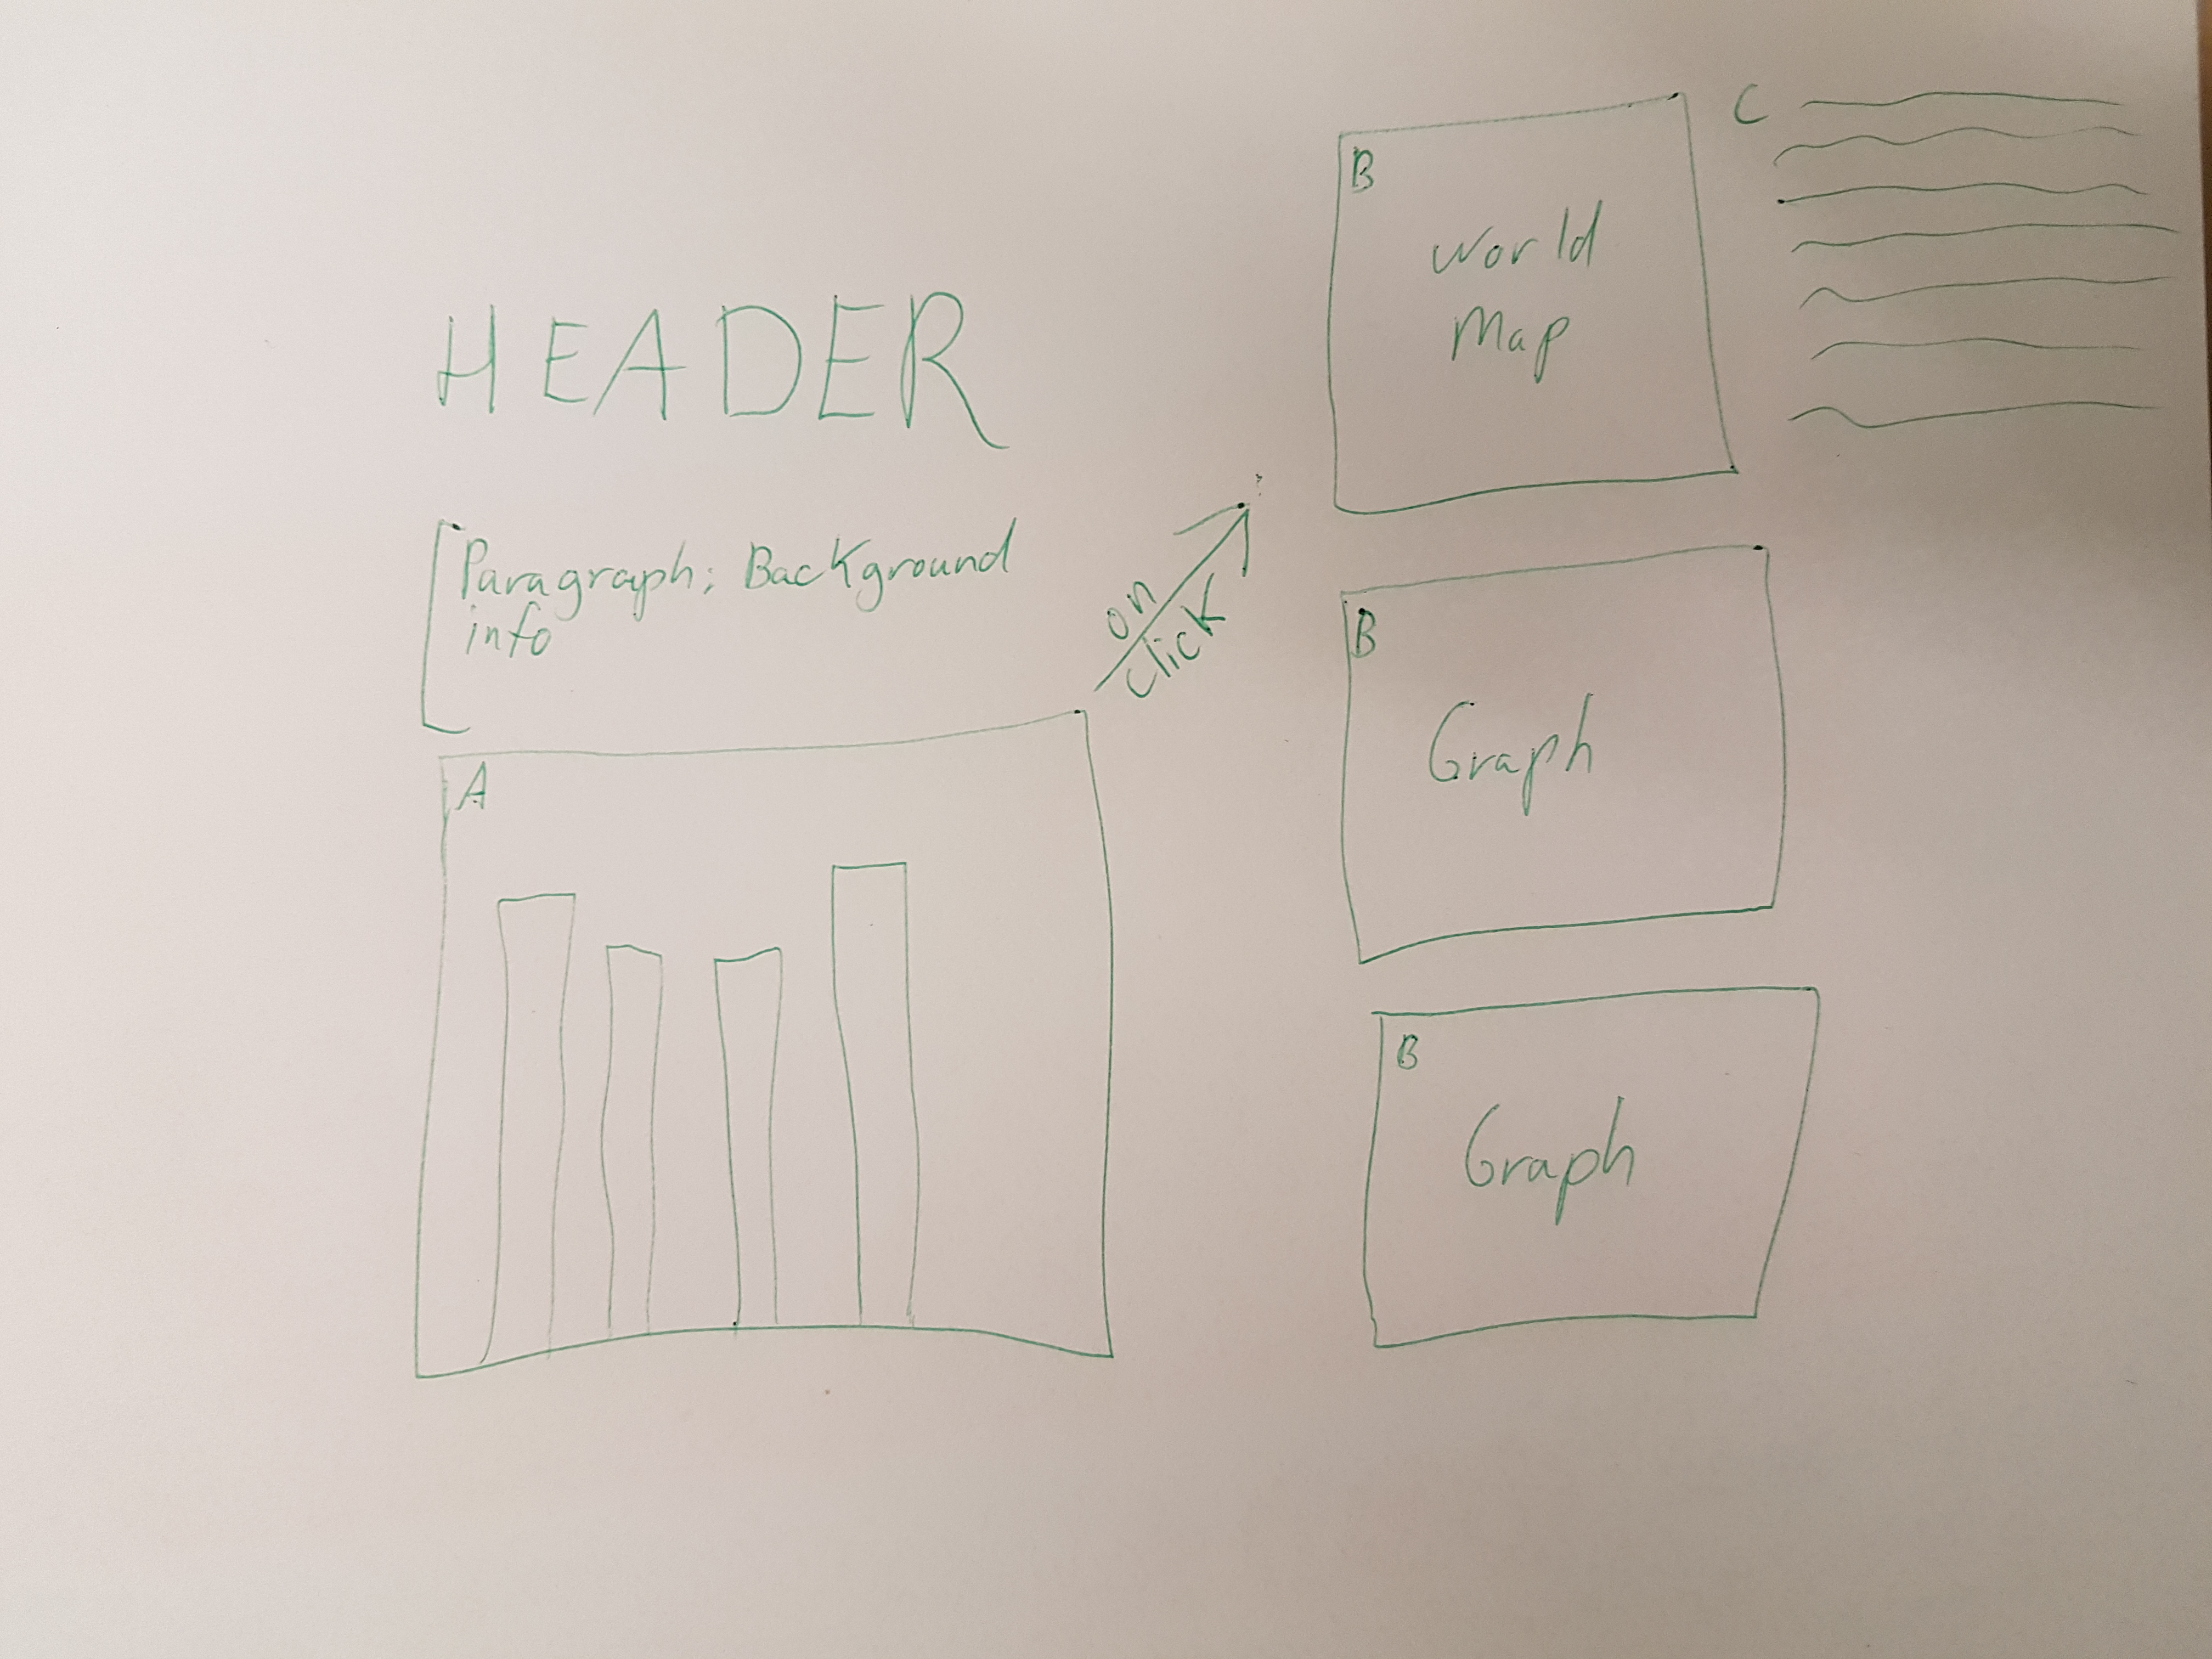 HEADER
Paragraph: Background
info
A
on
click
B
World
Map
C
B
Graph
B
Graph